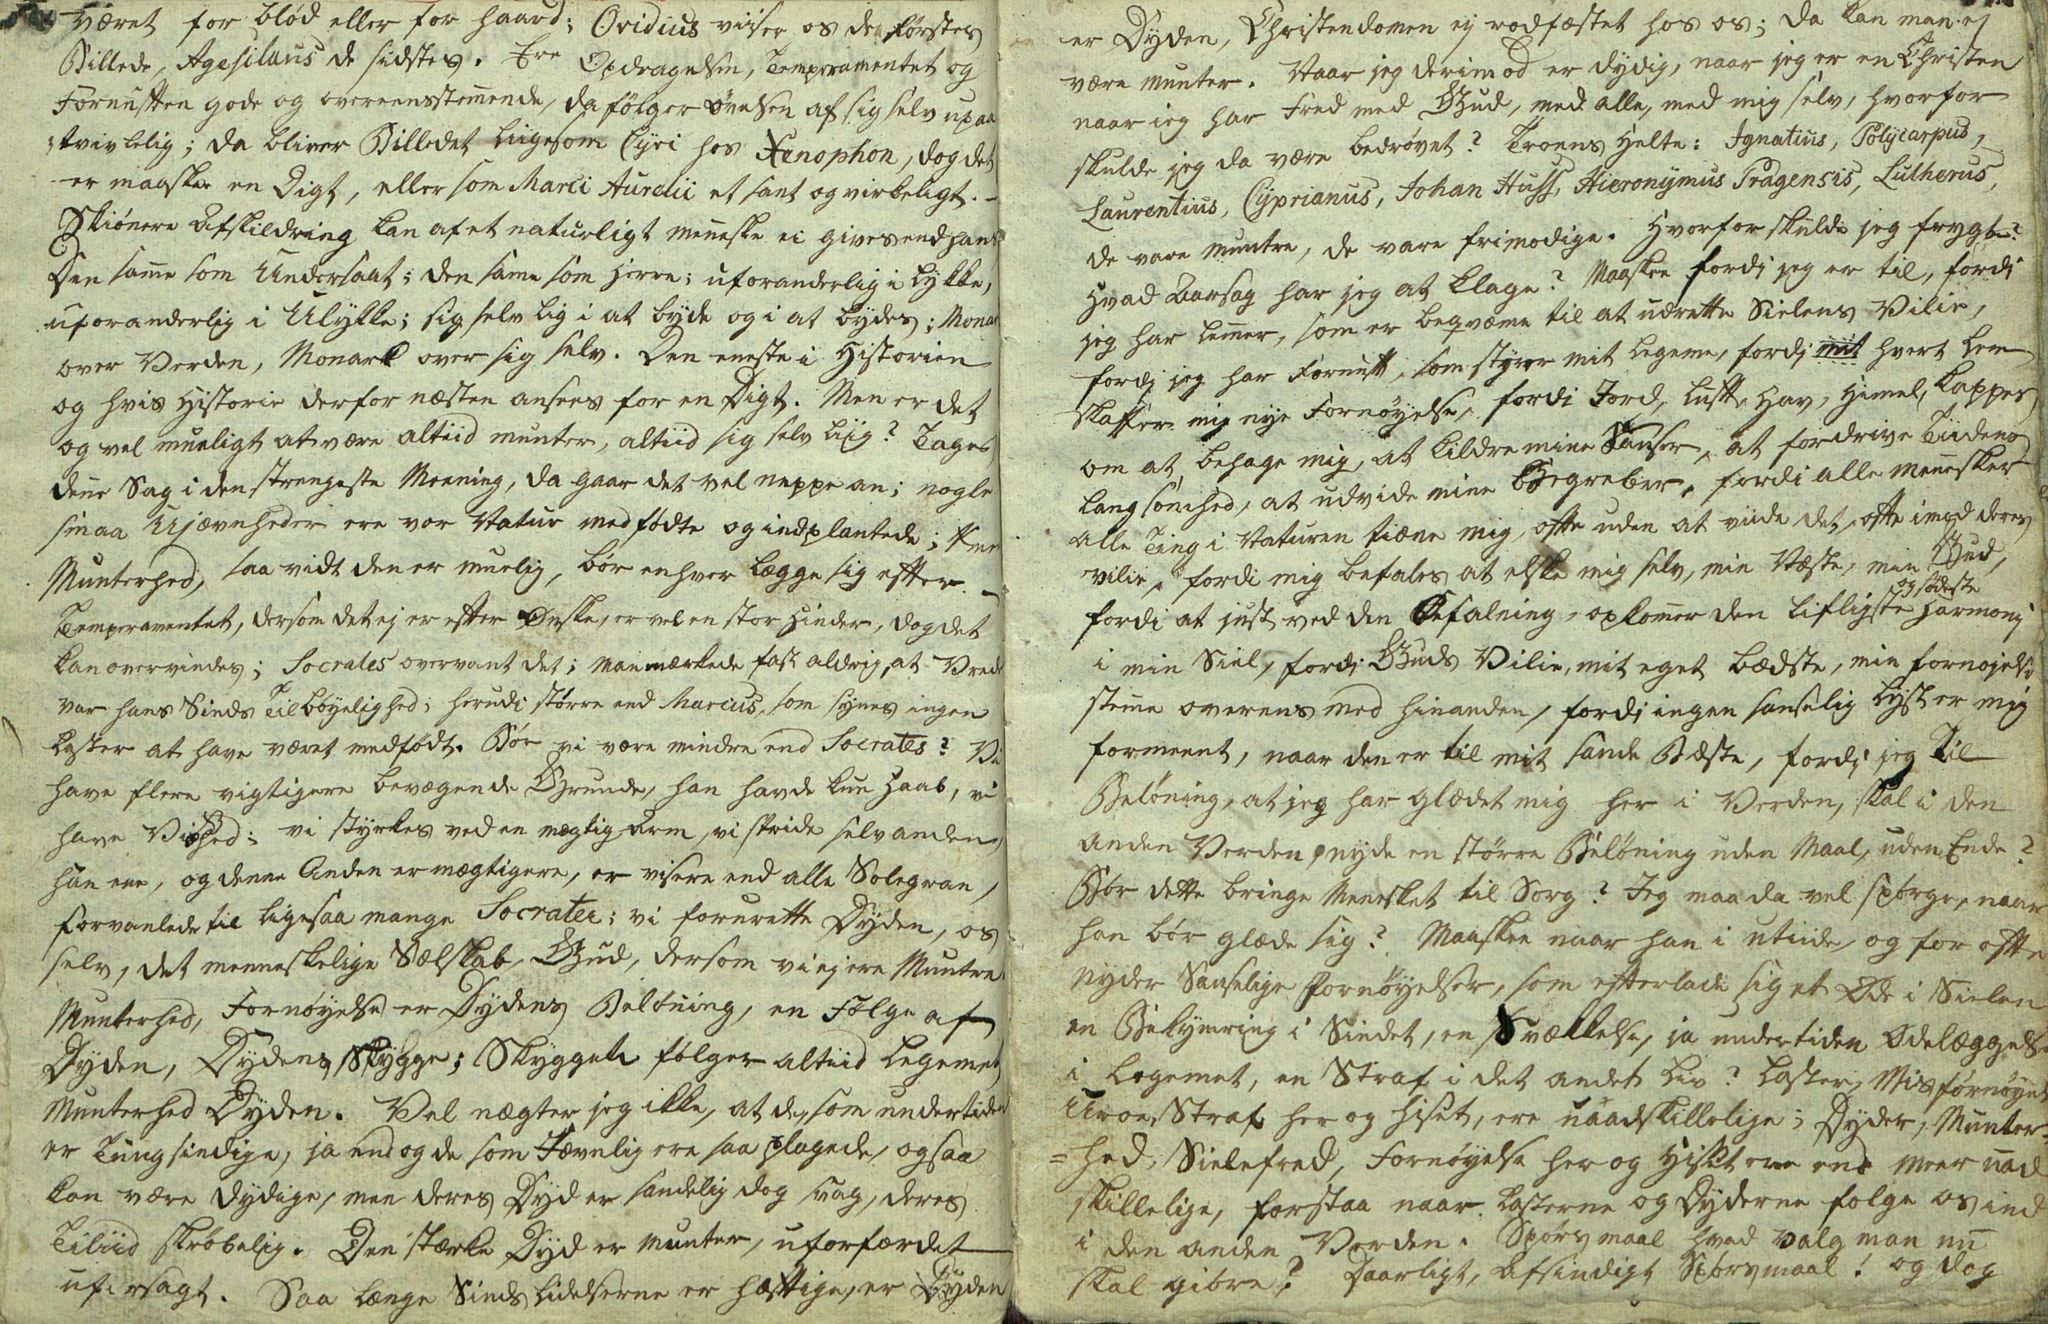 været for blød eller for haard; Ovidius viiser os den førstes
Billede, Agesilaus de sidstes. Ere Opdragelsen, Temperamentet og
Fornuften gode og overeensstemmende, da følger øvelsen af sig selv upaa
tvivlelig; da bliver Billedet liigesom Cyri hos Xenophon, dog det
er maaskee en Digt, eller som Marci Aurelii et sant og virkeligt. -
Skiønere Afskildring kan af et naturligt menneske ei gives end hans
Den same som Undersaat; den same som Herre; uforanderlig i Lykke,
uforanderlig i Ulykke; sig selv lig i at byde og i at bydes; Monark
over Verden, Monark over sig selv. Den eneste i Historien
og hvis Historie derfor næsten ansees for en Digt. Men er det
og vel mueligt at være altiid munter, altiid sig selv liig? Tages
dene Sag i den strengeste Meening, da gaar det vel neppe an; nogle
smaa Ujævnheder ere vor Natur medfødte og indplantede;
Munterhed, saa vidt den er muelig, bør enhver lægge sig efter.
Temperamentet, dersom det ej er efter Ønske, er vel en stor Hinder, dog det
kan overvindes; Socrates overvant det; man mærkede fast aldrig, at Vrede
var hans Sinds Tilbøyelighed; herudi større end Marcus, som synes ingen
Laster at have været medfødt. Bør vi være mindre end Socrates? Vi
have flere vigtigere bevægende Grunde, han havde kun Haab, vi
have Vished; vi styrkes ved en mægtig Arm, vi stride selv anden,
han ene, og denne Anden er mægtigere, er visere end alle Solegran,
forvanlede til ligesaa mange Socrater; vi forurette Dyden, os
selv, det menneskelige Sælskab, Gud, dersom vi ej ere Muntre
Munterhed, Fornøyelse er Dydens Belønning, en Følge af
Dyden, Dydens Skygge; Skyggen følger altiid Legemet,
Munterhed Dyden. Vel nægter jeg ikke, at de, som undertiden
er Tungsindige, ja end og de som Jævnlig ere saa plagede, ogsaa
kan være dydige, men deres Dyd er sandelig dog svag, deres
Tiliid skrøbelig. Den stærke Dyd er munter, uforfærdet
ufersagt. Saa længe Sinds Lidelserne er hæftige, er Dyden
er Dyden, Christendomen ej rodfæstet hos os; da kan man ej
være munter. Naar jeg derimod er dydig, naar jeg er en Christen
naar jeg har Fred med Gud, med alle, med mig selv, hvorfor
skulde jeg da være bedrøvet? Troens Helte: Ignatius, Polycarpus,
Laurentius, Cyprianus, Johan Huss, Hieronymus Pragensis, Lutherus,
de vare muntre, de vare frimodige. Hvorfor skulde jeg frygte?
Hvad Aarsag har jeg at klage? Maaskee fordj jeg er til, fordj
jeg har lemer, som er beqvæme til at udrette Sielens Vilie,
fordj jeg har Fornuft, som styrer mit Legeme, fordj mit hvert Lem
skaffer mig nye Fornøyelse, fordi Jord, Luft, Hav, Himel, kappes
om at behage mig, at kildre mine Sanser, at fordrive Tiidens
langsomhed, at udvide mine Begreber, fordi alle mennesker
alle Ting i Naturen tiæne mig, ofte uden at viide det, ofte imod deres
vilie, fordi mig befales at elske mig selv, min Næste, min Gud,
og sødeste
fordi at just ved den Befalning, opkomer den lifligste Harmonj
i min Siel, fordj Guds Vilie, mit eget bædste, min fornøjelse
steme overens med hinanden, fordj ingen sanselig Lyst er mig
formeent, naar den er til mit sande Bædste, fordj jeg til
Beløning, at jeg har glædet mig her i Verden, skal i den
anden Verden nyde en større Beløning uden Maal, uden Ende?
Bør dette bringe Menesket til Sorg? Jeg maa da vel spørge, naar
han bør glæde sig? Maaskee naar han i utiide, og for ofte
nyder Sanselige Fornøyelser, som efterlade sig et Øde i Sielen
en Bekymring i Sindet, en Svækkelse, ja undertiden Ødelæggelse
i Legemet, en Straf i det andet Liv? Laster, Misfornøyelse
Uroe, Straf her og hiset, ere uaadskillelige; Dyder, Munter-
=hed, Sielefred, Fornøyelse her og Hiset ere end meer uad
skillelige, forstaa naar Lasterne og Dyderne følge os ind
i den anden Verden. Spørsmaal hvad Valg man nu
skal giøre? Daarligt, afsindigt Spørsmaal! og dog